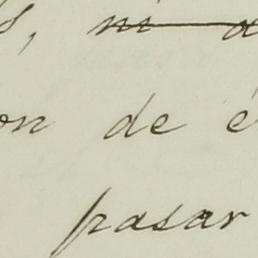 ni
on de é
pasar